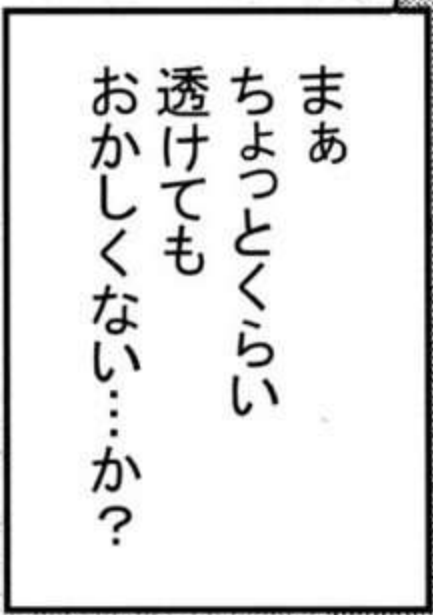 まぁ
ちょっとくらい
透けても
おかしくない…か？